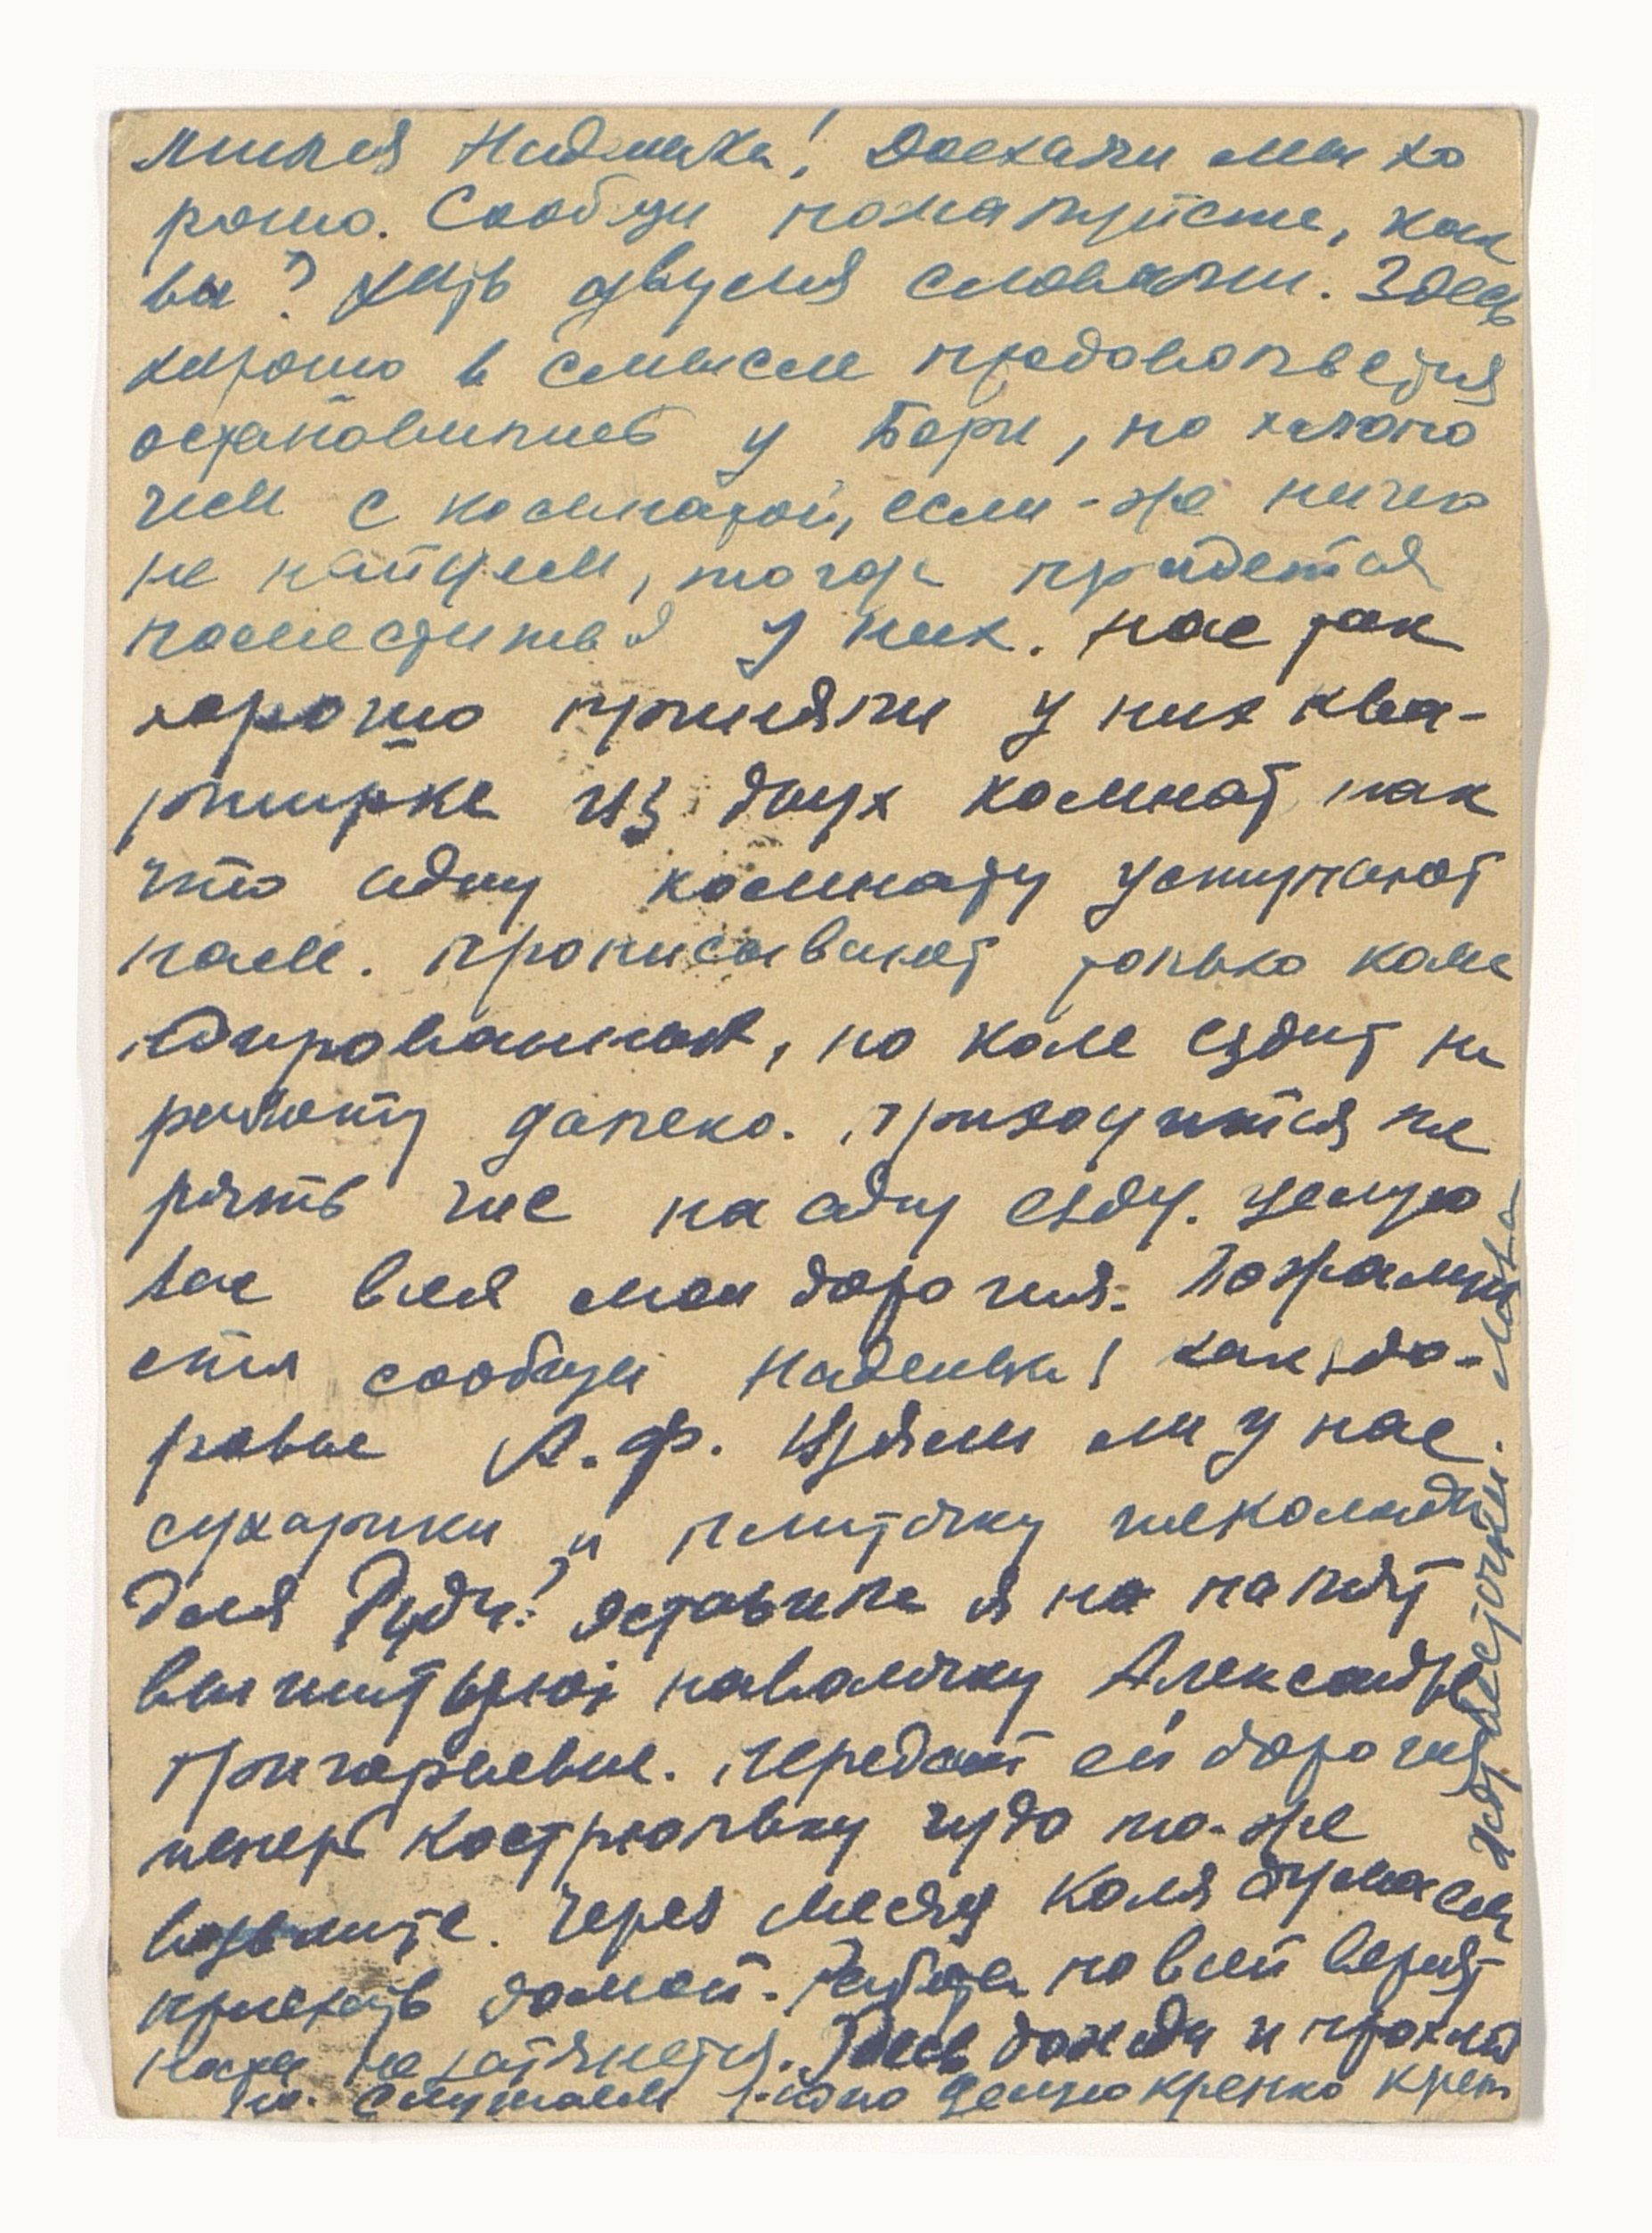 Милая Надюшка! Доехали мы хо
рошо. Сообщи пожалуйста, как
вы? Хоть двумя словами. Здесь
хорошо в смысле продовольствия
остановились у Бори, но хлопо
чем с комнатой, если-же ничего
не найдем, тогда придется
поместиться у них. Нас так
хорошо приняли у них ква-
ртирка из двух комнат так
что одну комнату уступают
нам. Прописывают только кома
ндированных, но Коле ездит на
работу далеко. Приходится те
рять час на одну езду. Целую
вас всея мои дорогия. Пожалуй
ста сообщи Наденька! Как здо-
ровье А.Ф. Взяли ли у нас
сухарики и плиточку шеколада
для Руди? Оставила я на память
вышитую наволочку Александре
Григорьевне. Передай ей дорогия
теперь кострюльку чудо то-же
возьмите. Через месяц Коля думает
приехать домой. Работа по всей вероят
ности не затянется. Здесь дожди и прохлад
но. Слушаем радио Целую крепко креп
Жду весточки. Мама